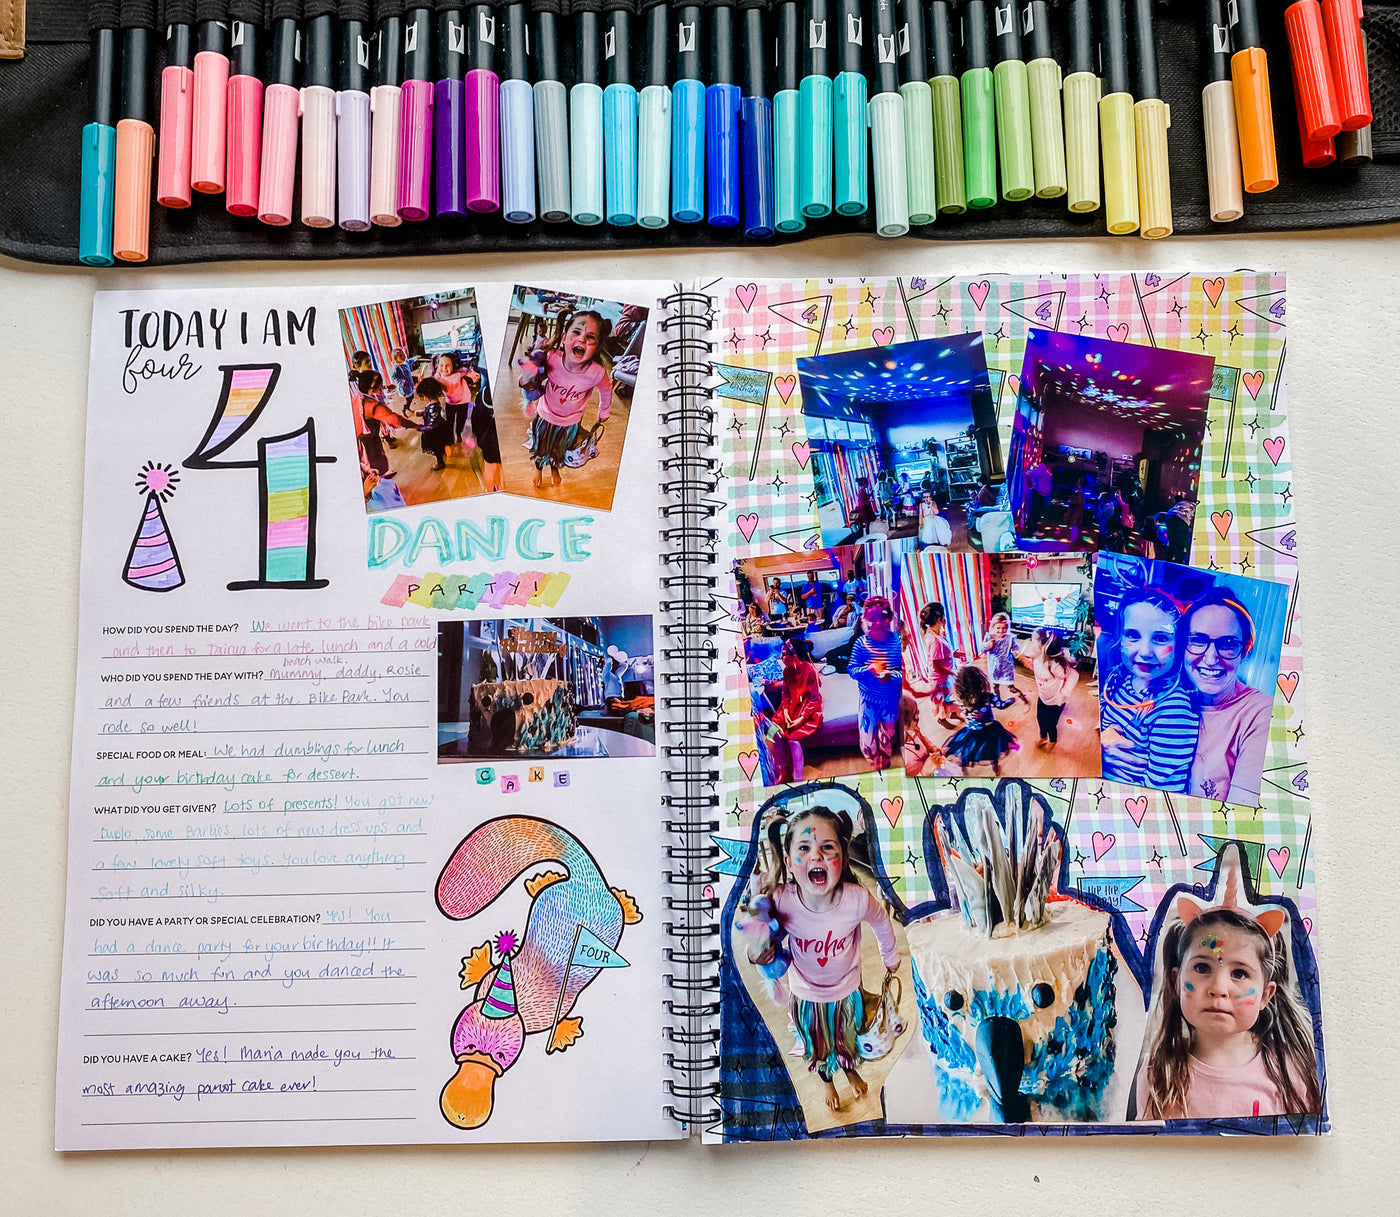 TODAY I AM
four
4
DANCE
PARTY!
HOW DID YOU SPEND THE DAY? We went to the bike park
and then to Tainja for a late lunch and a cold
beach walk.
WHO DID YOU SPEND THE DAY WITH? Mummy, daddy, Rosie
and a few friends at the Bike Park. You
rode so well!
SPECIAL FOOD OR MEAL: We had dumblings for lunch
and your birthday cake for dessert.
WHAT DID YOU GET GIVEN? Lots of presents! You got new
Duplo, some Barbies, lots of new dress ups and
a few lovely soft toys. You love anything
soft and silky.
DID YOU HAVE A PARTY OR SPECIAL CELEBRATION? Yes! You
had a dance party for your birthday!! It
was so much fun and you danced the
afternoon away.
DID YOU HAVE A CAKE? Yes! Maria made you the
most amazing parrot cake ever!
Happy
Birthday
CAKE
FOUR
4
4
4
4
aroha
aroha
HIP HIP
HOORAY!